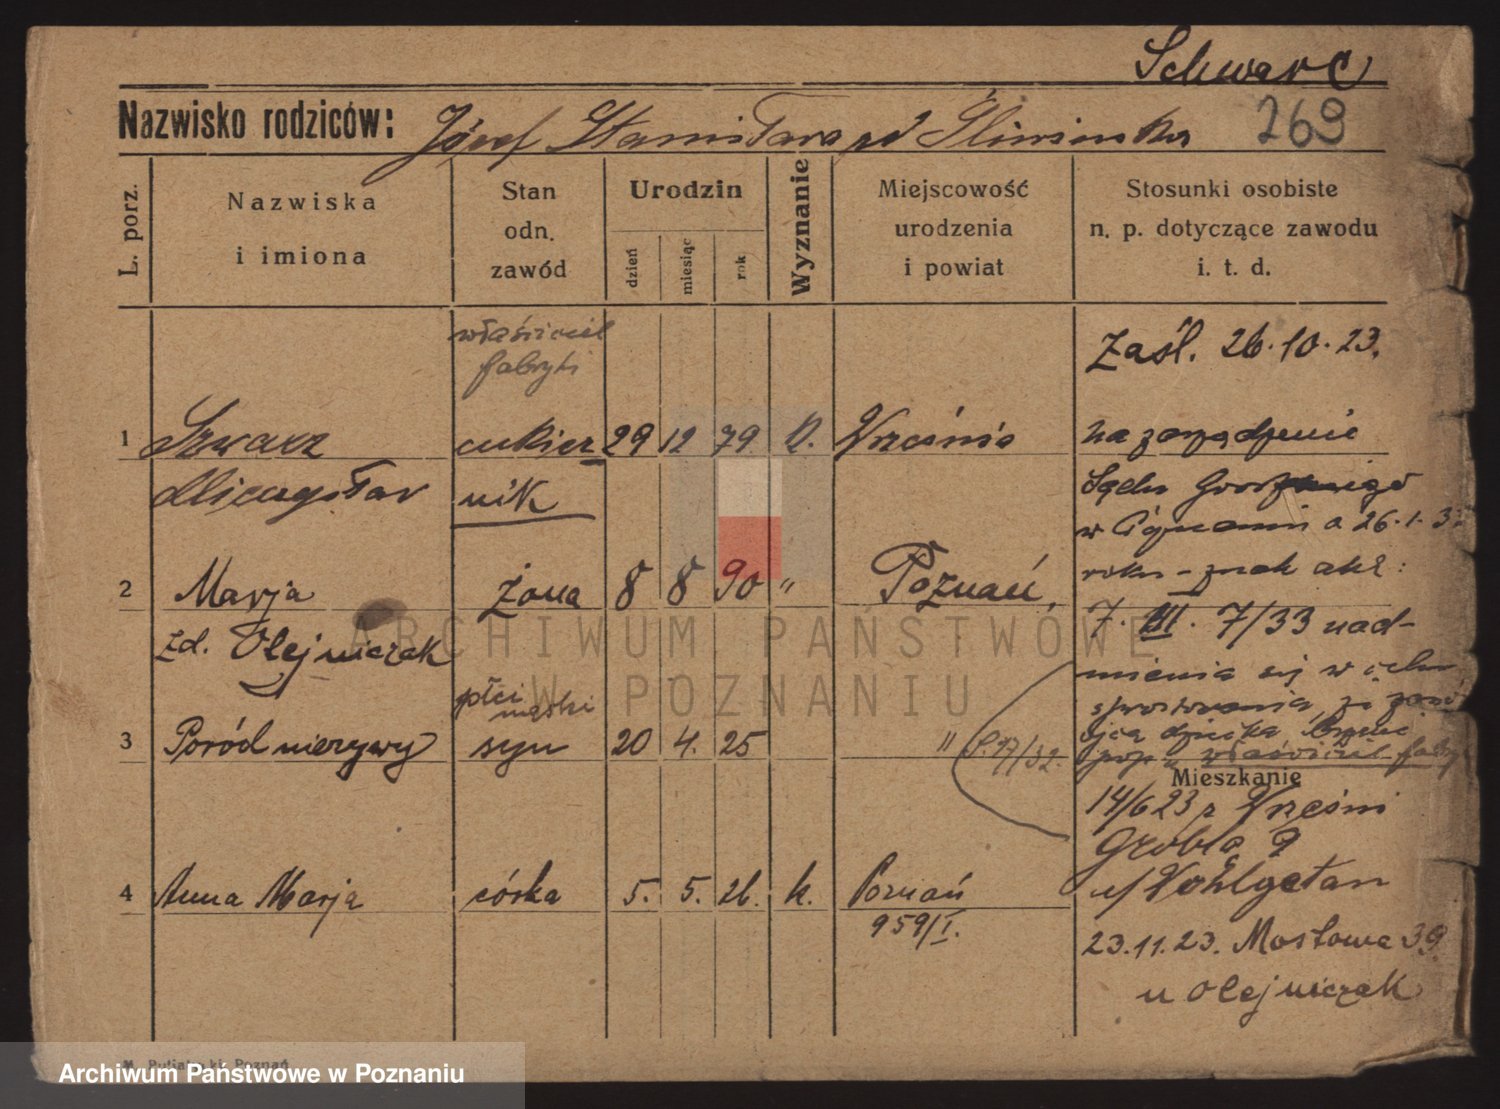 Schwarc
Nazwisko rodziców: Józef Stanisława zd Śliwińska 269
L. porz.
Nazwiska
i imiona
Stan
odn.
zawód
Urodzin
dzień
miesiąc
rok
Wyznanie
Miejscowość
urodzenia
i powiat
Stosunki osobiste
n. p. dotyczące zawodu
i. t. d.
właściciel
fabryki
Zaśl. 26.10.23.
1 Szwarz cukier 29 12 79 k. Września
Mieczysław nik
na zarządzenie
Sądu Grodzkiego
w Poznaniu 26.1.33
roku - znak akt:
2 Marja żona 8 8 90 " Poznań,
zd. Olejniczak
7. III. 7/33 nad-
mienia się w celu
sprostowania, że
ojca dziecka
właściciel fabry
płci
męski
3 Poród nieżywy syn 20 4. 25 " 17/32.
Mieszkanie
14/6 23 z Wrześni
Grobla 9
u/ Wohlgetan
4 Anna Marja córka 5. 5. 26. k. Poznań
959/I.
23.11.23. Mostowa 39
u Olejniczak
ARCHIWUM PAŃSTWOWE
W POZNANIU
Poznań
Archiwum Państwowe w Poznaniu